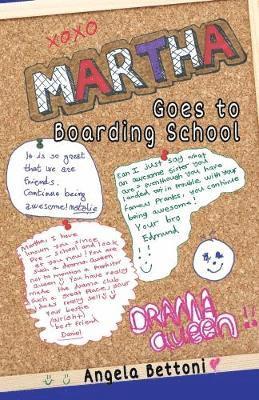 XOXO
MARTHA
Goes to
Boarding School
It is so great
that we are
friends.
Continue being
awesome! Natalie
Can I just say what
an awesome sister you
are - eventhough you have
landed us in trouble with your
famous Pranks, you continue
being awesome!
Your bro
Edmund
Martha, I have
known you since
Pre-school and look
at you now! You are
such a drama-queen
not to mention a Prankster
queen! You have really
made the drama club
such a great place, your
really sell
Your bestie
(alright)
best friend
Daniel
DRAMA
Queen!!
Angela Bettoni